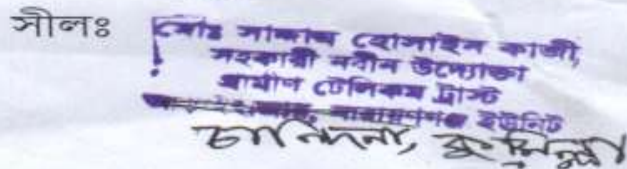 সীলঃ
মোঃ সাদ্দাম হোসাইন কাজী,
সহকারী নবীন উদ্যোক্তা
গ্রামীণ টেলিকম ট্রাস্ট
নারায়ণগঞ্জ ইউনিট
চান্দিনা, কুমিল্লা